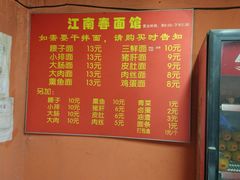 江南春面馆
如需要干拌面，请购买时告知
腰子面 13元 三鲜面 10元
小排面 13元 猪肝面 9元
大肠面 13元 皮肚面 9元
大肉面 13元 肉丝面 8元
熏鱼面 13元 鸡蛋面 8元
另加：
腰子 10元 熏鱼 10元 青菜 1元
小排 10元 猪肝 6元 鸡蛋 2元
大肠 10元 皮肚 6元 油渣 3元
大肉 10元 肉丝 5元 面条 2元
打包盒 1元/个